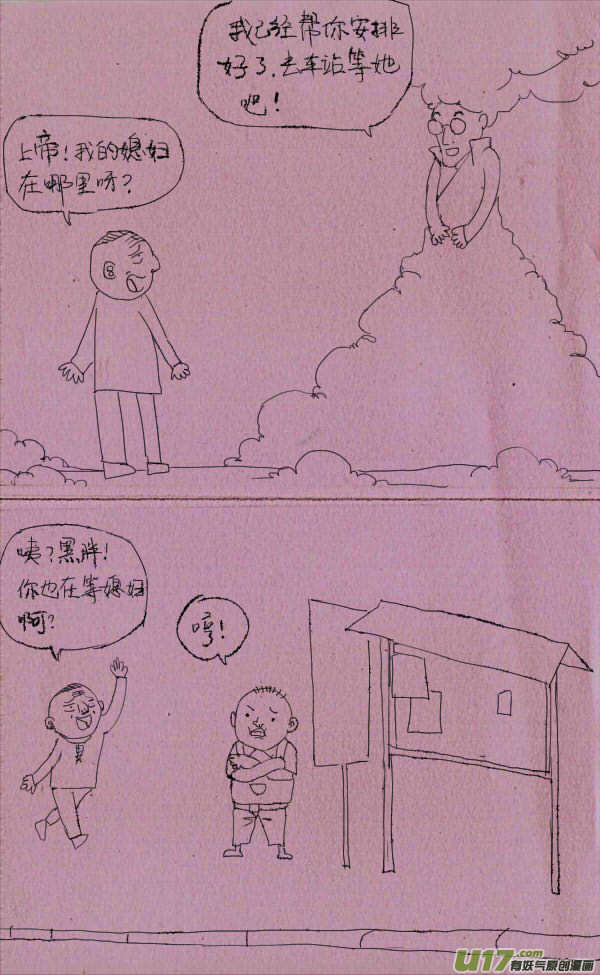 我已经帮你安排
好了.去车站等她
吧!
上帝!我的媳妇
在哪里呀?
咦?黑胖!
你也在等媳妇
啊?
哼!
U17.com
有妖气原创漫画